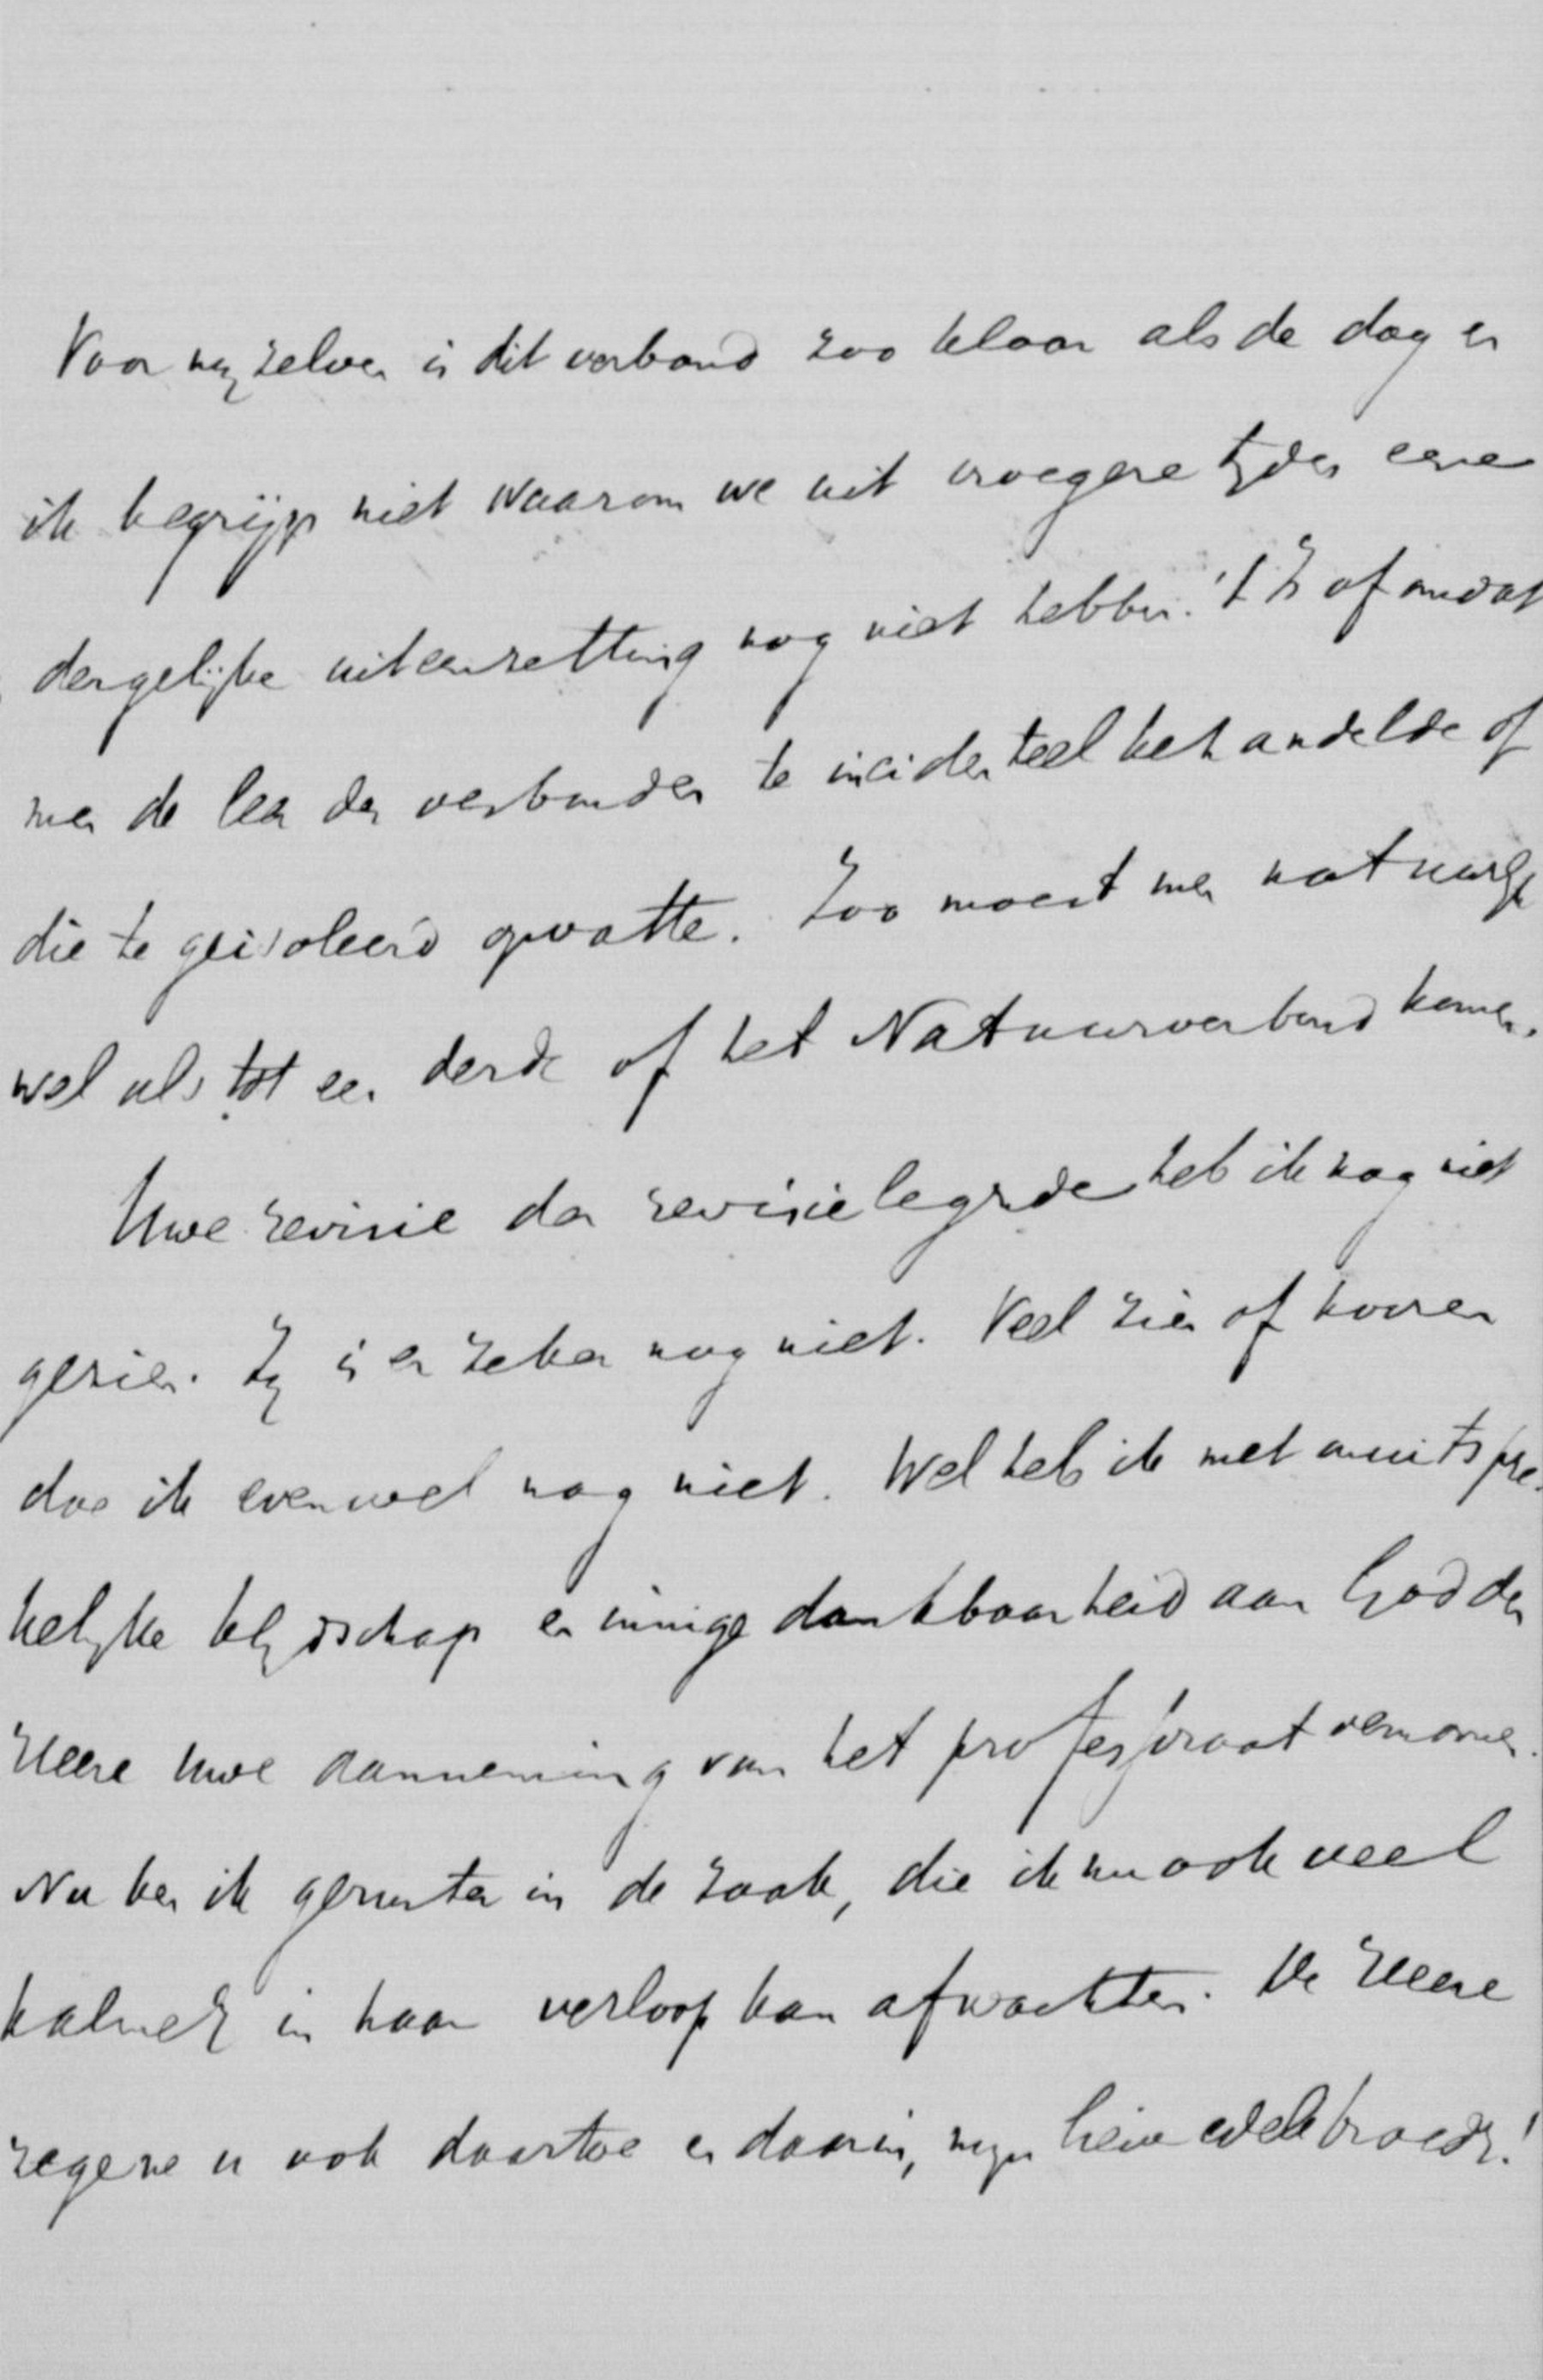 Voor mijzelven is dit verband zoo klaar als de dag en
ik begrijp niet waarom we uit vroegere tijden eene
dergelijke uiteenzetting nog niet hebben. 't Is of omdat
men de leer der verbonden te incidenteel behandelde of
die te geïsoleerd opvatte. Zoo moest men natuurlijk
wel als tot een derde of het Natuurverbond komen.
Uwe revisie der revisielegende heb ik nog niet
gezien. Zij is er zeker nog niet. Veel zien of hooren
doe ik evenwel nog niet. Wel heb ik met onuitspre-
kelijke blijdschap en innige dankbaarheid aan God den
Heere uwe aanneming van het professoraat vernomen.
Nu ben ik geruster in de zaak, die ik nu ook veel
kalmer in haar verloop kan afwachten. De Heere
zegene u ook daartoe en daarin, mijn lieve edele broeder!